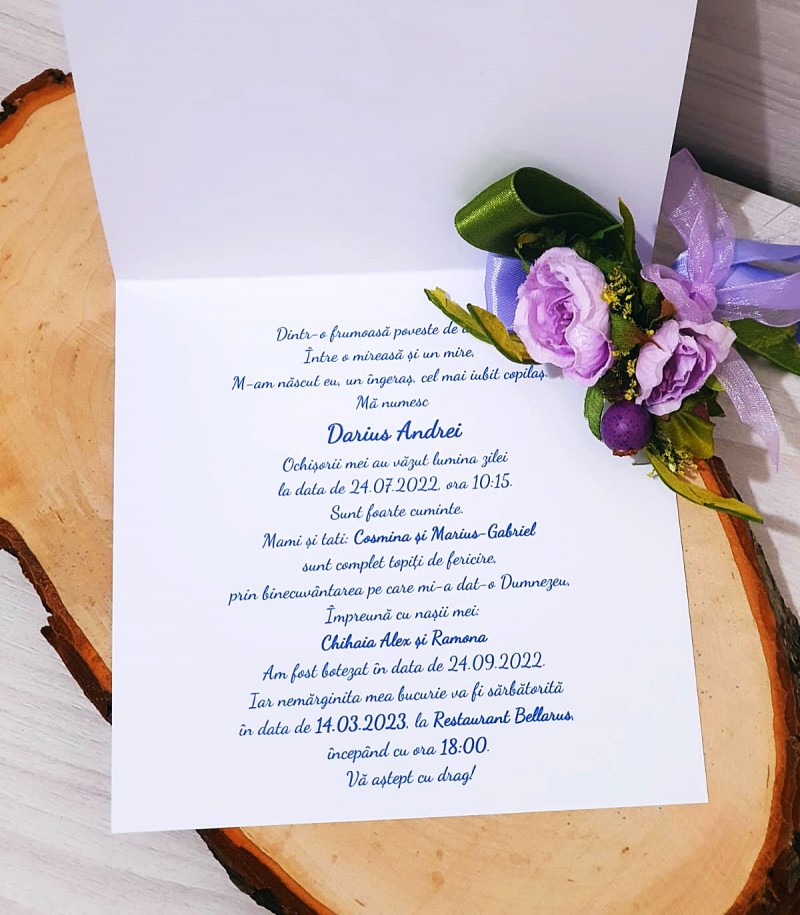 Dintr-o frumoasă poveste de
Între o mireasă și un mire,
M-am născut eu, un îngeraș, cel mai iubit copilaș.
Mă numesc
Darius Andrei
Ochișorii mei au văzut lumina zilei
la data de 24.07.2022, ora 10:15.
Sunt foarte cuminte.
Mami și tati: Cosmina și Marius-Gabriel
sunt complet topiți de fericire,
prin binecuvântarea pe care mi-a dat-o Dumnezeu,
Împreună cu nașii mei:
Chihaia Alex și Ramona
Am fost botezat în data de 24.09.2022.
Iar nemărginita mea bucurie va fi sărbătorită
în data de 14.03.2023, la Restaurant Bellarus,
începând cu ora 18:00.
Vă aștept cu drag!